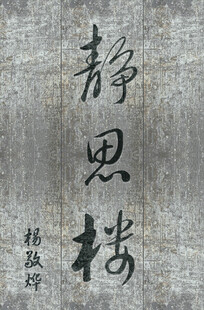 静思楼
杨敬烨